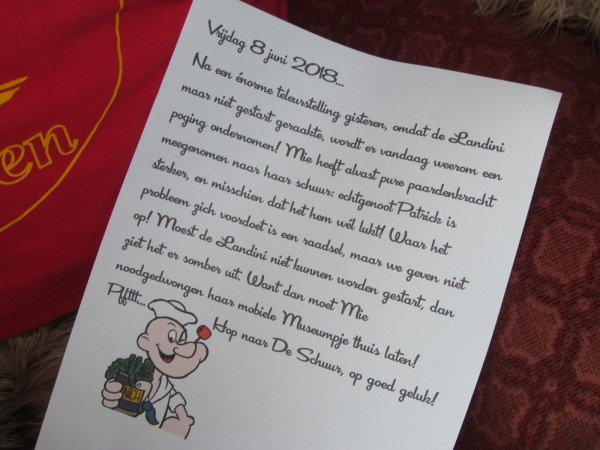 Vrijdag 8 juni 2018...
Na een énorme teleurstelling gisteren, omdat de Landini
maar niet gestart geraakte, wordt er vandaag weerom een
poging ondernomen! Mie heeft alvast pure paardenkracht
meegenomen naar haar schuur: echtgenoot Patrick is
sterker, en misschien dat het hem wél lukt! Waar het
probleem zich voordoet is een raadsel, maar we geven niet
op! Moest de Landini niet kunnen worden gestart, dan
ziet het er somber uit. Want dan moet Mie
noodgedwongen haar mobiele Museumpje thuis laten!
Pfffttt... Hop naar De Schuur, op goed geluk!
en